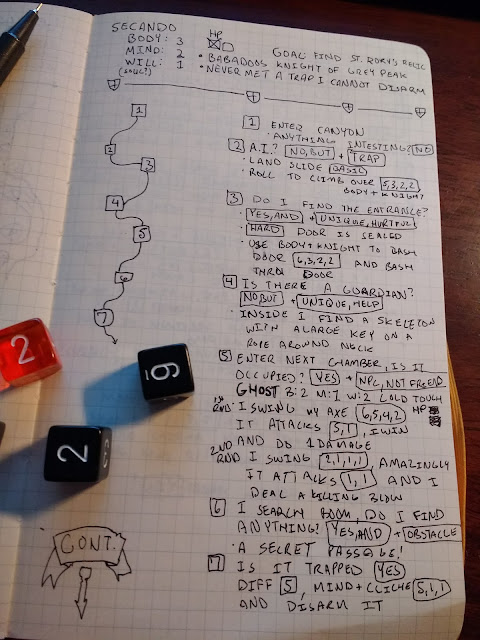 SECANDO
BODY: 3
MIND: 2
WILL: 1
(SOUL?)
HP
GOAL: FIND ST. RORY'S RELIC
• BABADOOS KNIGHT OF GREY PEAK
• NEVER MET A TRAP I CANNOT DISARM
1
2
3
4
5
6
7
1 ENTER CANYON
• ANYTHING INTESTING? NO
2 A.I.? NO, BUT + TRAP
• LAND SLIDE BASIC
• ROLL TO CLIMB OVER 5,3,2,2
BODY + KNIGHT?
3 DO I FIND THE ENTRANCE?
• YES, AND + UNIQUE, HURTFUL
• HARD DOOR IS SEALED
• USE BODY + KNIGHT TO BASH
DOOR 6,3,2,2 AND BASH
THRU DOOR
4 IS THERE A GUARDIAN?
NO, BUT + UNIQUE, HELP
• INSIDE I FIND A SKELETON
WITH A LARGE KEY ON A
ROPE AROUND NECK
5 ENTER NEXT CHAMBER, IS IT
OCCUPIED? YES + NPC, NOT FRIEND
GHOST B:2 M:1 W:2 COLD TOUCH
1ST RND I SWING MY AXE 6,5,4,2 HP
IT ATTACKS 5,1, I WIN
AND DO 1 DAMAGE
2ND RND I SWING 2,1,1,1, AMAZINGLY
IT ATTACKS 1,1 AND I
DEAL A KILLING BLOW
6 I SEARCH ROOM, DO I FIND
ANYTHING? YES, AND + OBSTACLE
• A SECRET PASSAGE!
7 IS IT TRAPPED YES
DIFF 5, MIND + CLICHE 5,1,1
AND DISARM IT
CONT.
2
6
2